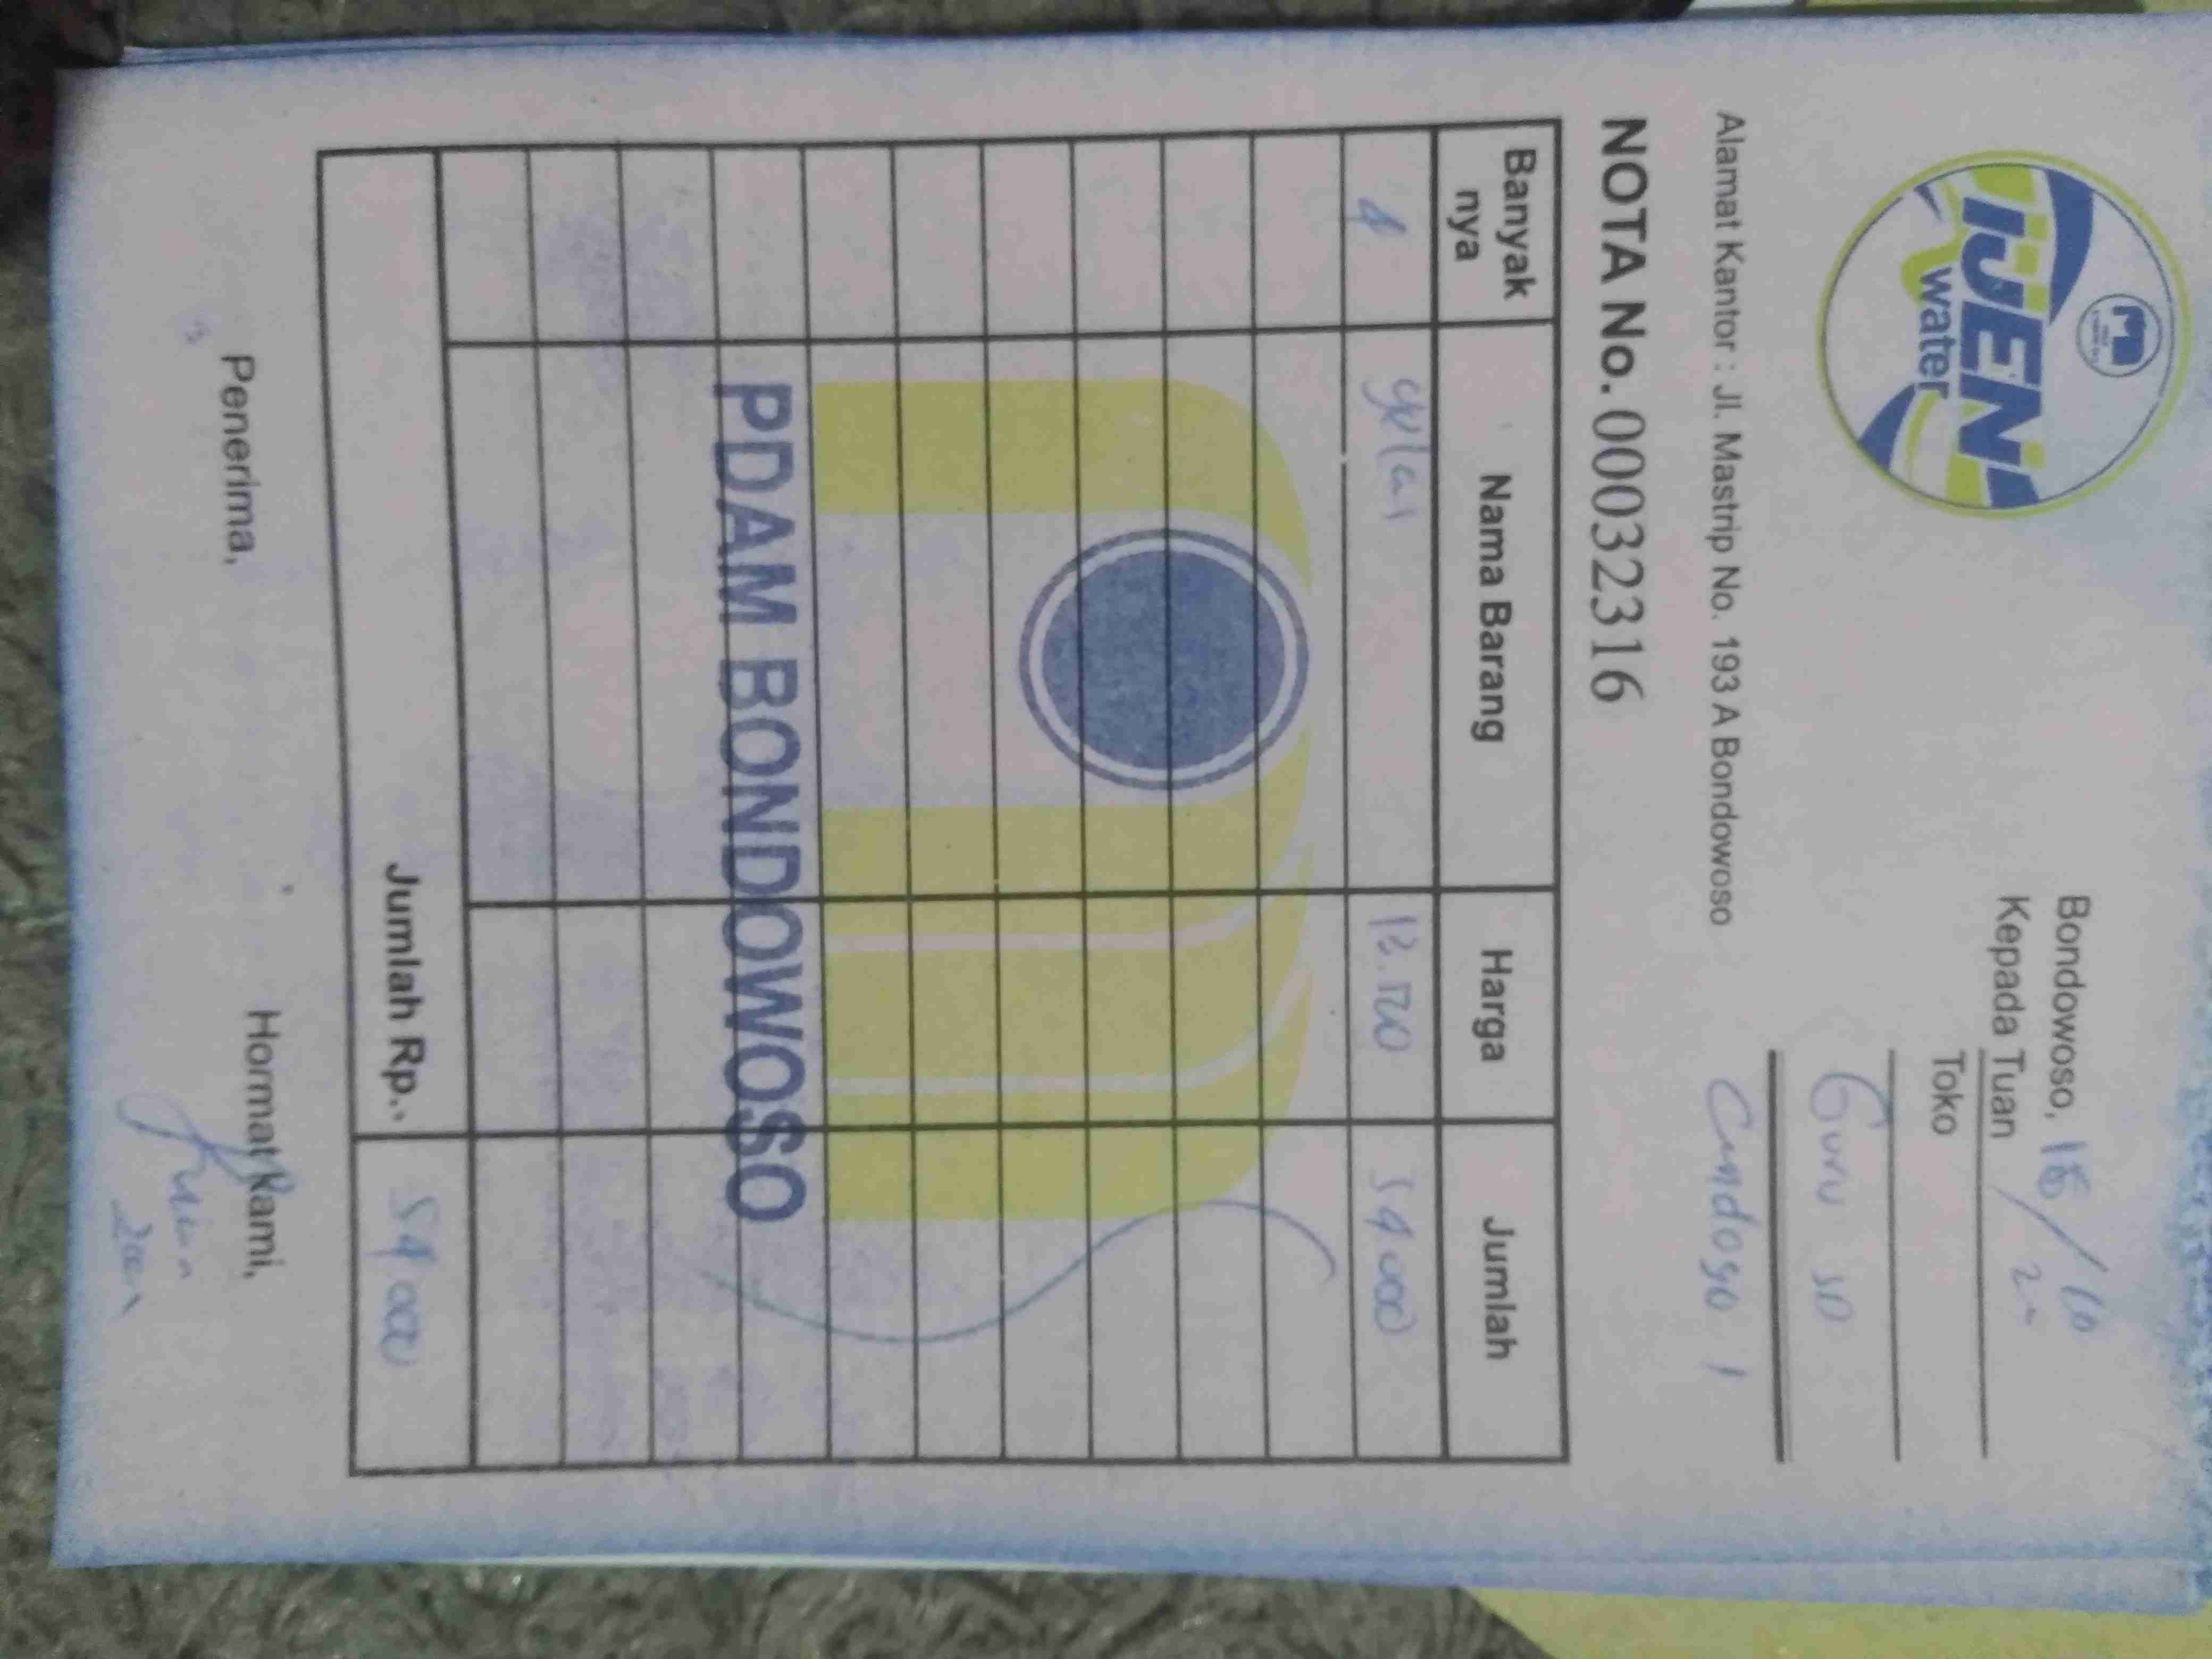 IJEN
water
Bondowoso, 18/10
Kepada Tuan
Toko
Guru SD
Cindogo 1
Alamat Kantor : Jl. Mastrip No. 193 A Bondowoso
NOTA No. 00032316
Banyak nya Nama Barang Harga Jumlah
4 gelas 13.500 54.000
PDAM BONDOWOSO
Jumlah Rp.. 54.000
Penerima, Hormat Kami,